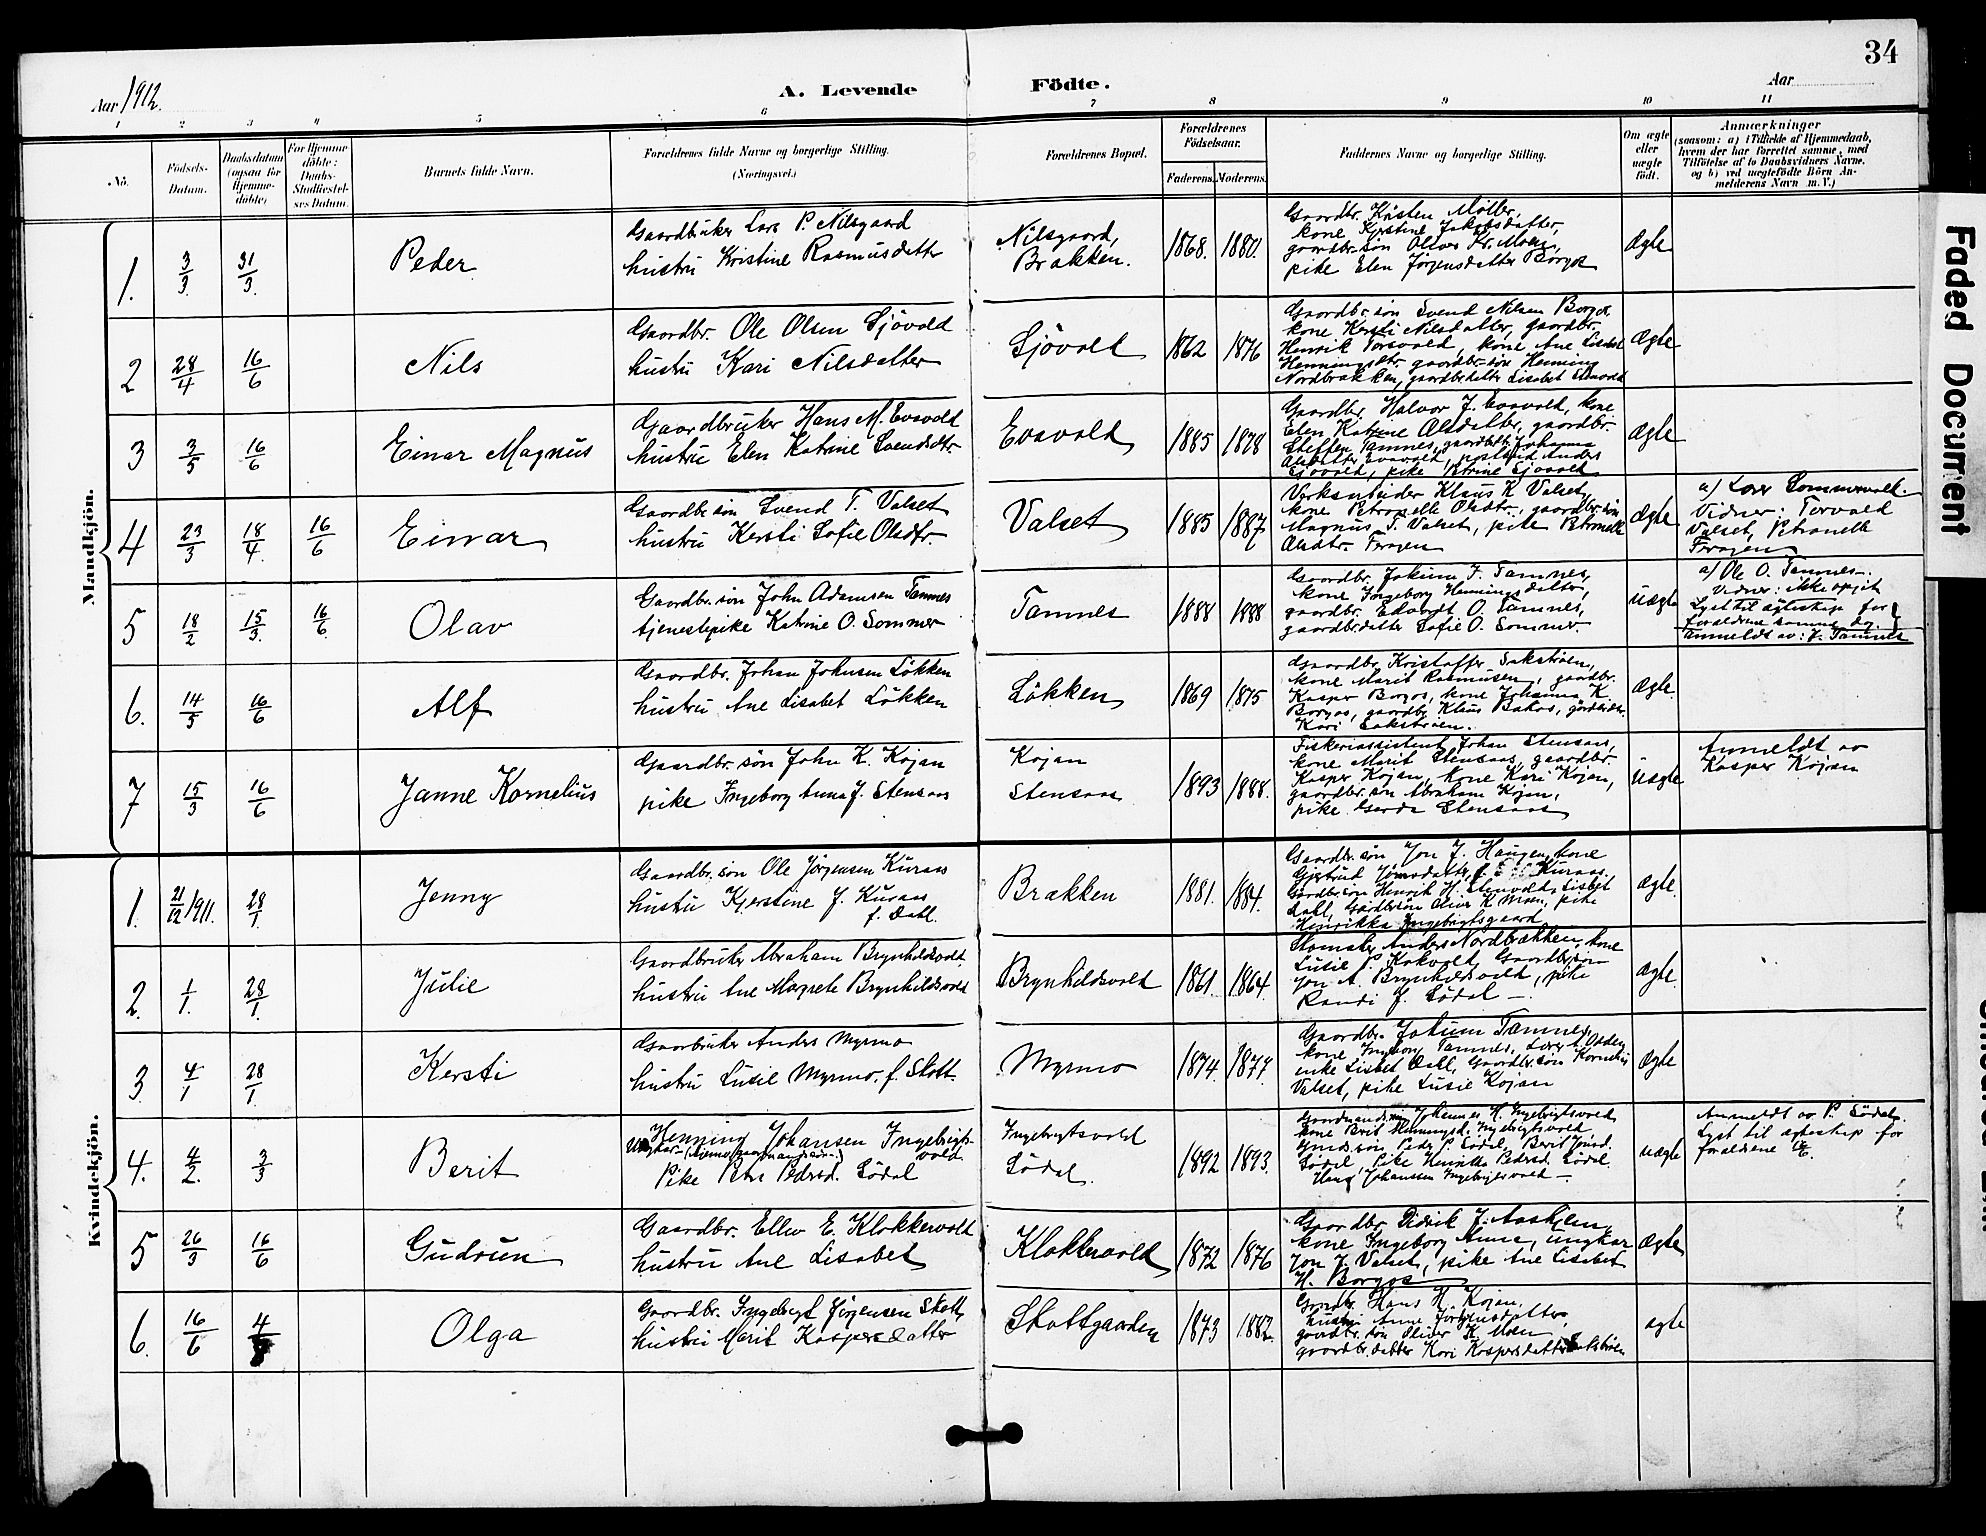 34
Aar 1912.
A. Levende Födte.
Aar
1 2 3 4 5 6 7 8 9 10 11
No.
Födsels-
Datum.
Daabsdatum
(ogsaa for
Hjemme-
döbte)
For Hjemme-
döbte:
Daabs-
Stadfæstel-
ses Datum.
Barnets fulde Navn.
Forældrenes fulde Navne og borgerlige Stilling.
(Næringsvei.)
Forældrenes Bopæl.
Forældrenes
Födselsaar.
Faderens. Moderens.
Faddernes Navne og borgerlige Stilling.
Om ægte
eller
uægte
födt.
Anmærkninger
(saasom: a) i Tilfælde af Hjemmedaab,
hvem der har forrettet samme, med
Tilföielse af to Daabsvidners Navne.
og b) ved uægtefödte Börn An-
melderens Navn m. V.)
Mandkjön.
1. 3/3. 31/3. Peder
Gaardbruker Lars P. Nilsgaard
hustru Kristine Rasmusdatter
Nilsgaard,
Brækken.
1868. 1880.
Gaardbr. Kristen Møller,
kone Kjerstine Jakobsdatter,
gaardbr.søn Oliver Kr. Moen,
pike Elen Jørgensdatter Borgos
Ægte
2 28/4 16/6 Nils
Gaardbr. Ole Olsen Sjövold
hustru Kari Nilsdatter
Sjövold
1862 1876
Gaardbr.søn Svend Nilsen Borgos
kone Kersti Nilsdatter, gaardbr.
Henrik Torsvold, kone Ane Lisabet
Henningsdtr. gaardbr.søn Henning
Nordbrækken, gaardbr.datter Lisabet Stenvold
Ægte
3 3/5 16/6 Einar Magnus
Gaardbruker Hans M. Evavold
hustru Elen Katrine Svendsdtr.
Evavold
1885 1878
Gaardbr. Halvor J. Evavold, kone
Elen Katrine Olsdatter, gaardbr.
Steffen Tamnes, gaardbdtr. Johanna
Evavold, Anders
Sjövold, pike Petrine Sjövold
Ægte
4 23/3 18/4. 16/6 Einar
Gaardbr.søn Svend T. Valset
hustru Kersti Sofie Olsdtr.
Valset
1885 1887
Verksarbeider Klaus K. Valset,
kone Petronelle Olsdtr., gaardbr.søn
Magnus T. Valset, pike Petronelle
Olsdtr. Feragen
Ægte
a) Lærer Sommervold.
Vidner: Torvald
Valset, Petronelle
Feragen
5 18/2 15/3. 16/6. Olav
Gaardbr.søn John Adamsen Tamnes
tjenestepike Katrine O. Sommer
Tamnes
1888 1888
Gaardbr. Jokum J. Tamnes,
kone Ingeborg Henningsdatter,
gaardbr. Edvardt O. Tamnes,
gaardbr.datter Sofie O. Sommer.
uægte
a) Ole O. Tamnes.
Vidner: ikke opgit
Lyst til ægteskap for
forældrene samme dag.
Anmeldt av: J. Tamnes
6. 14/5 16/6 Alf
Gaardbr. Johan Johnsen Lökken
hustru Ane Lisabet Lökken
Lökken
1869 1875
Gaardbr. Kristoffer Sakstrøen,
kone Marit Rasmusen, gaardbr.
Kasper Borgos, kone Johanna K.
Borgos, gaardbr. Klaus Bakos,
Kari Sakstrøen.
Ægte.
7 15/3 16/6 Janne Kornelius
Gaardbr.søn John K. Kojan
pike Ingeborg Anna J. Stensaas
Kojan
Stensaas
1893 1888.
Fiskeriassistent Johan Stensaas,
kone Marit Stensaas, gaardbr.
Kasper Kojan, kone Kari Kojan,
gaardbr.søn Abraham Kojan,
pike Gerda Stensaas
uægte
Anmeldt av
Kasper Kojan
Kvindekjön.
1. 21/12 1911. 28/1. Jenny
Gaardbr.søn Ole Jörgensen Kuraas
hustru Kjerstine J. Kuraas
f. Dahl.
Brækken
1881. 1884.
Gaardbr.søn Jon J. Haugen, kone
Gjertrud Kuraas,
Gaardbr.søn Henrik H. Stenvold, Lisbet
Dahl, Gaardbr.søn Oliver K. Moen, pike
Henrikka Ingebrigtsgaard
Ægte.
2. 1/1. 28/1. Julie
Gaardbruker Abraham Brynhildsvold.
hustru Ane Margrete Brynhildsvold
Brynhildsvold
1861. 1864.
Skomaker Anders Nordbrækken, kone
Lusie P. Kokvold, Gaardbr.søn
Jon A. Brynhildsvold, pike
Randi J. Södal —.
Ægte.
3. 4/1 28/1. Kersti
Gaarbruker Anders Myrmo
hustru Lusie Myrmo. f. Skott.
Myrmo
1874. 1877.
Gaardbr. Jokum Tamnes,
kone Ingeborg Tamnes, Lærer A. Odden
enke Lisbet Dahl, Gaardbr.søn Kornelius
Valset, pike Lusie Kojan
Ægte
4. 4/2. 3/3 Berit
Henning Johansen Ingebrigts-
vold.
Pike Pedersd. Södal
Ingebrigtsvold
Södal.
1892 1893.
Johannes H. Ingebrigtsvold
kone Berit Henningsd. Ingebrigtsvold
Peder P. Södal, Berit Jonsd.
Södal, Pike Henrikka Pedersd. Södal.
Johanssen Ingebrigtsvold —
uægte
Anmeldt av P. Södal.
Lyst til ægteskap for
forældrene
5 26/3 16/6 Gudrun
Gaardbr. Ellev E. Klokkervold
hustru Ane Lisabet
Klokkervold
1872 1876
Gaardbr. Didrik J. Aashjem,
kone Ingeborg Anna, ungkar
Jon J. Valset, pike Ane Lisabet
H. Borgos
Ægte
6. 16/6 4/8 Olga
Gaardbr. Ingebrigt Jörgensen Skott
hustru Marit Kaspersdatter
Skottgaarden
1873 1882.
Gaardbr. Hans H. Kojan,
hustru Anne Jörgensdatter,
gaardbr.søn Oliver K. Moen
gaardbr.datter Kari Kaspersdatter Sakstrøen
ægte
Faded Document